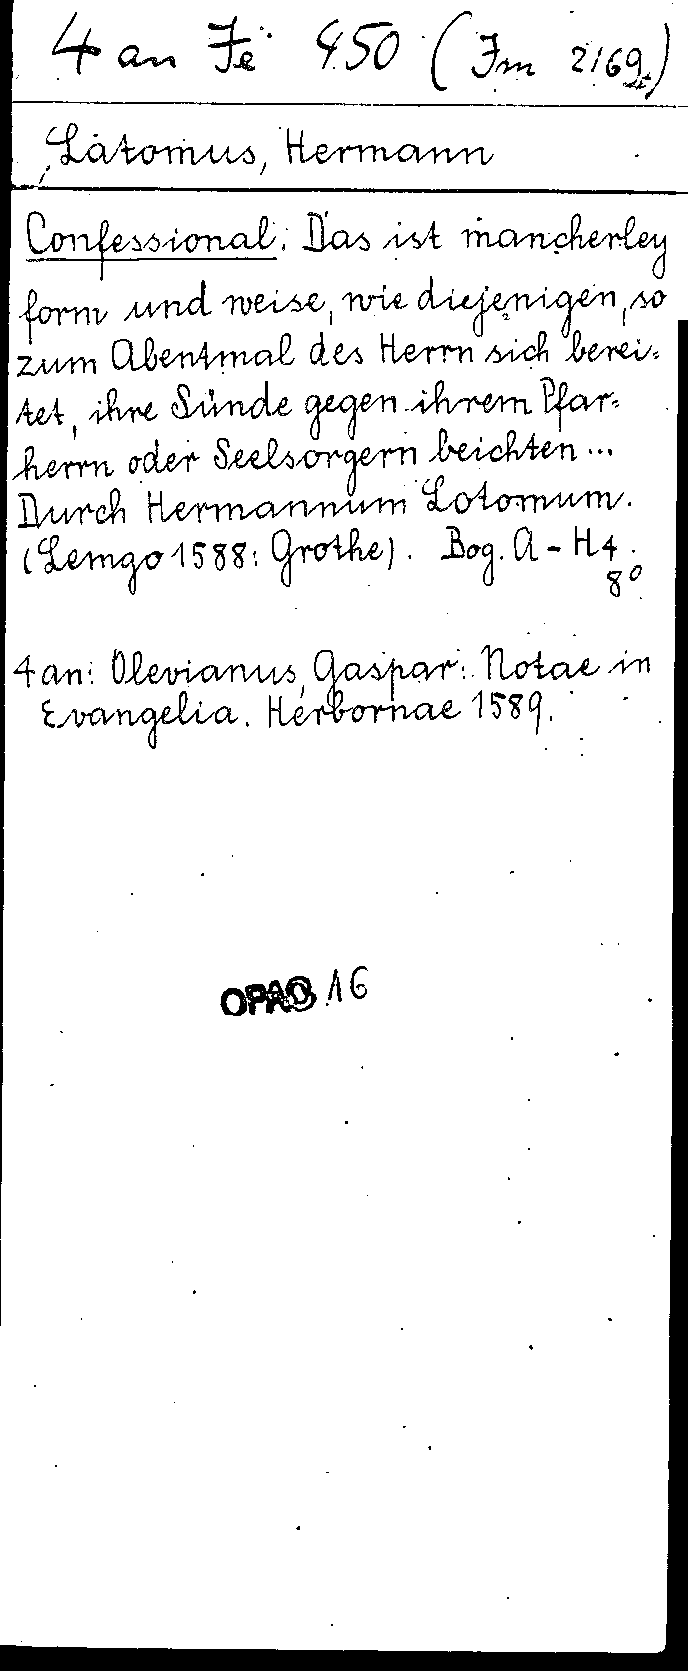 4 an Fe 450 (Jm 2169)
Latomus, Hermann
Confessional. Das ist mancherley
form und weise, wie diejenigen, so
zum Abentmal des Herrn sich berei-
tet, ihre Sünde gegen ihrem Pfar-
herrn oder Seelsorgern beichten...
Durch Hermannum Lotomum.
(Lemgo 1588: Grothe). Bog. A - H4.
8°
4 an: Olevianus, Gaspar: Notae in
Evangelia. Herbornae 1589.
OPAC 16